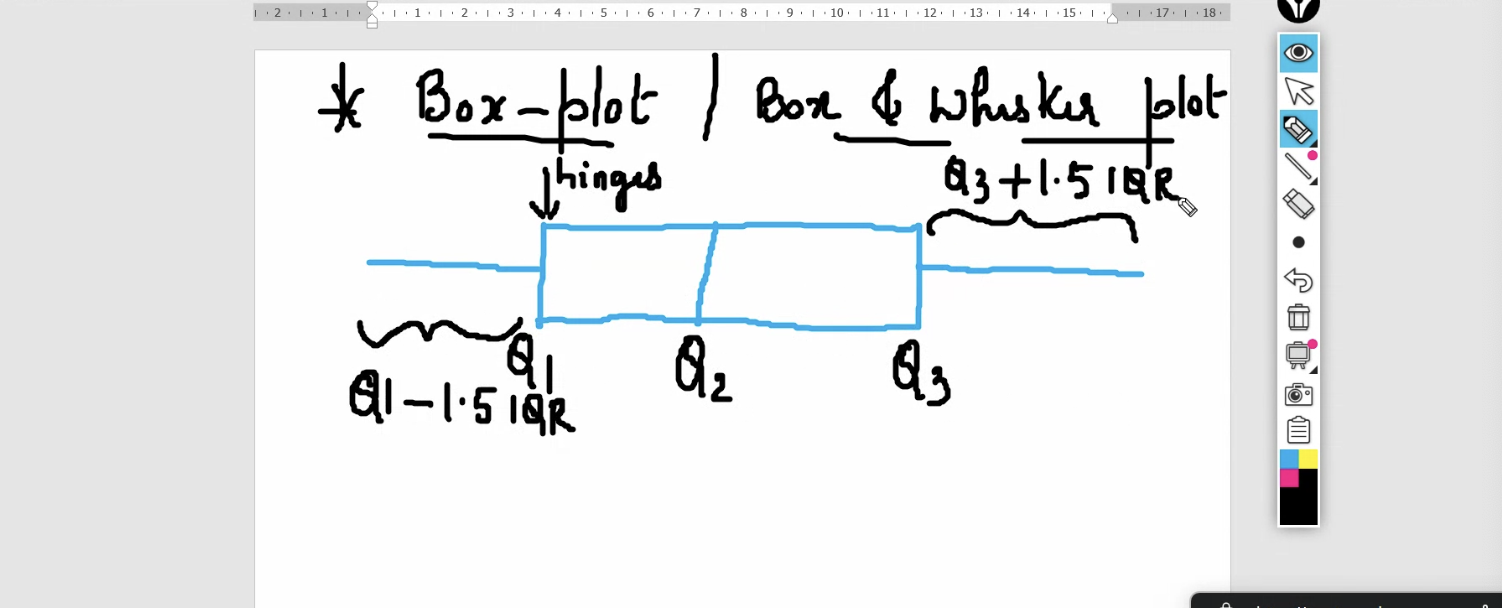 2 1 1 2 3 4 5 6 7 8 9 10 11 12 13 14 15 17 18
* Box-plot / Box & Whisker plot
hinges
Q3+1.5 IQR
Q1 Q2 Q3
Q1-1.5 IQR